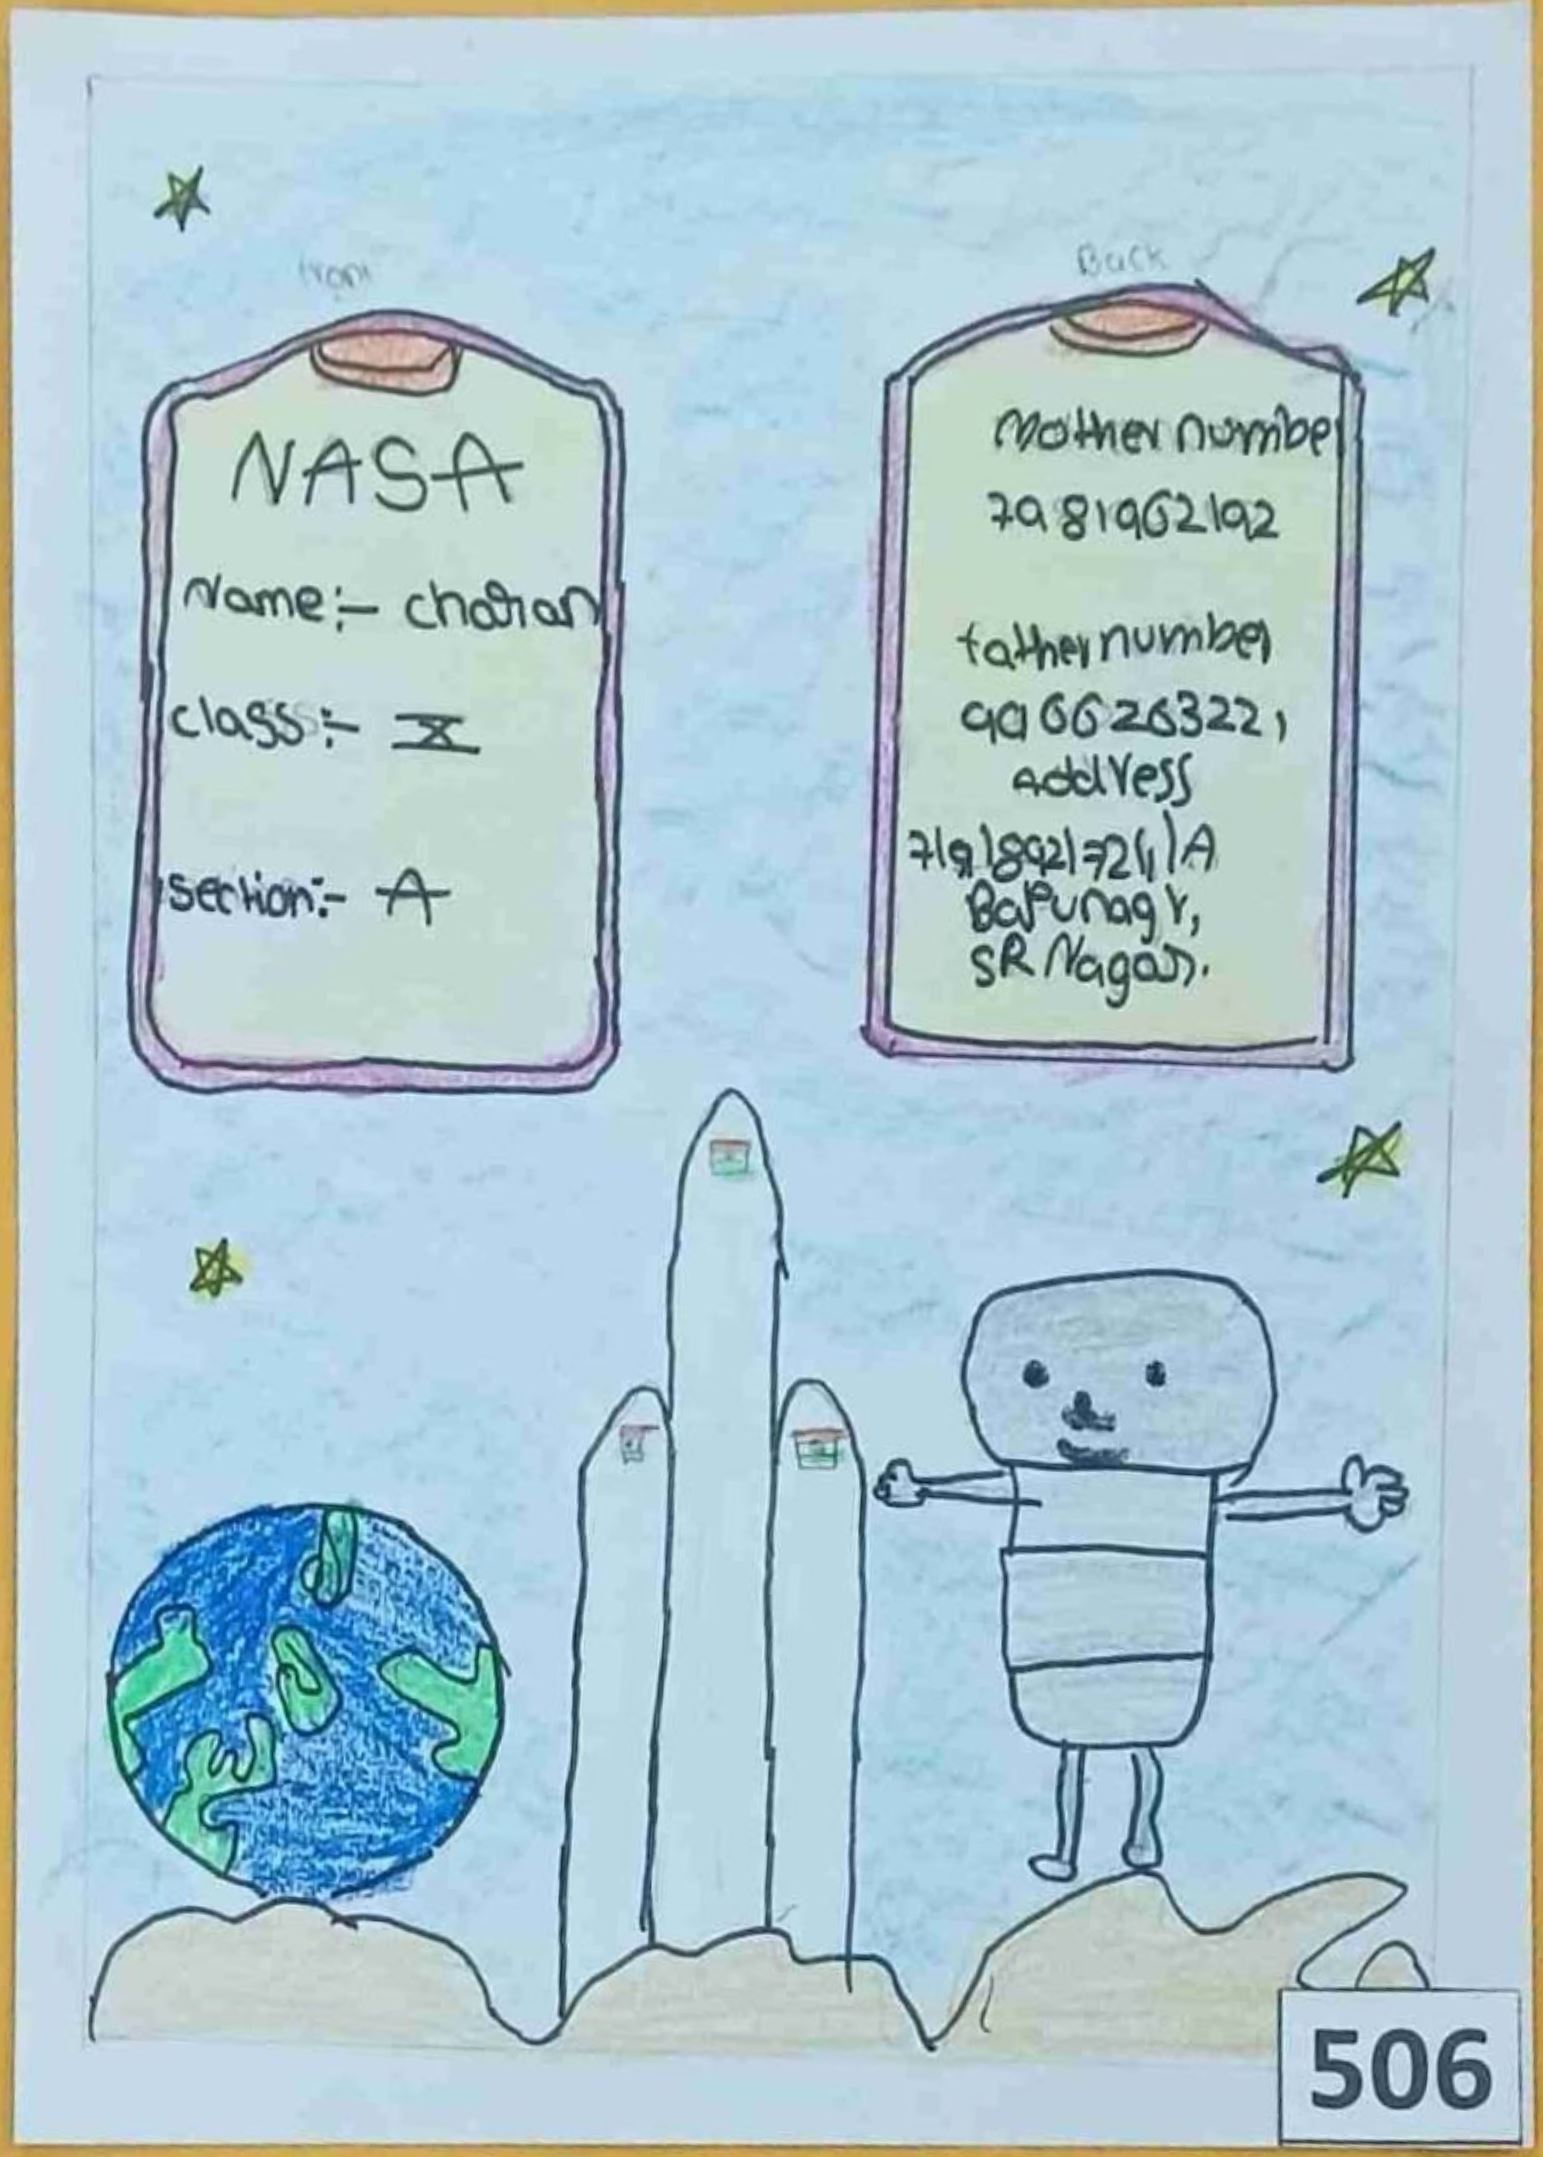 front
NASA
Name:- charan
class:- X
section:- A
Back
Mother number
7981962192
father number
9966263221
Address
Bapunagr,
SR Nagar.
506